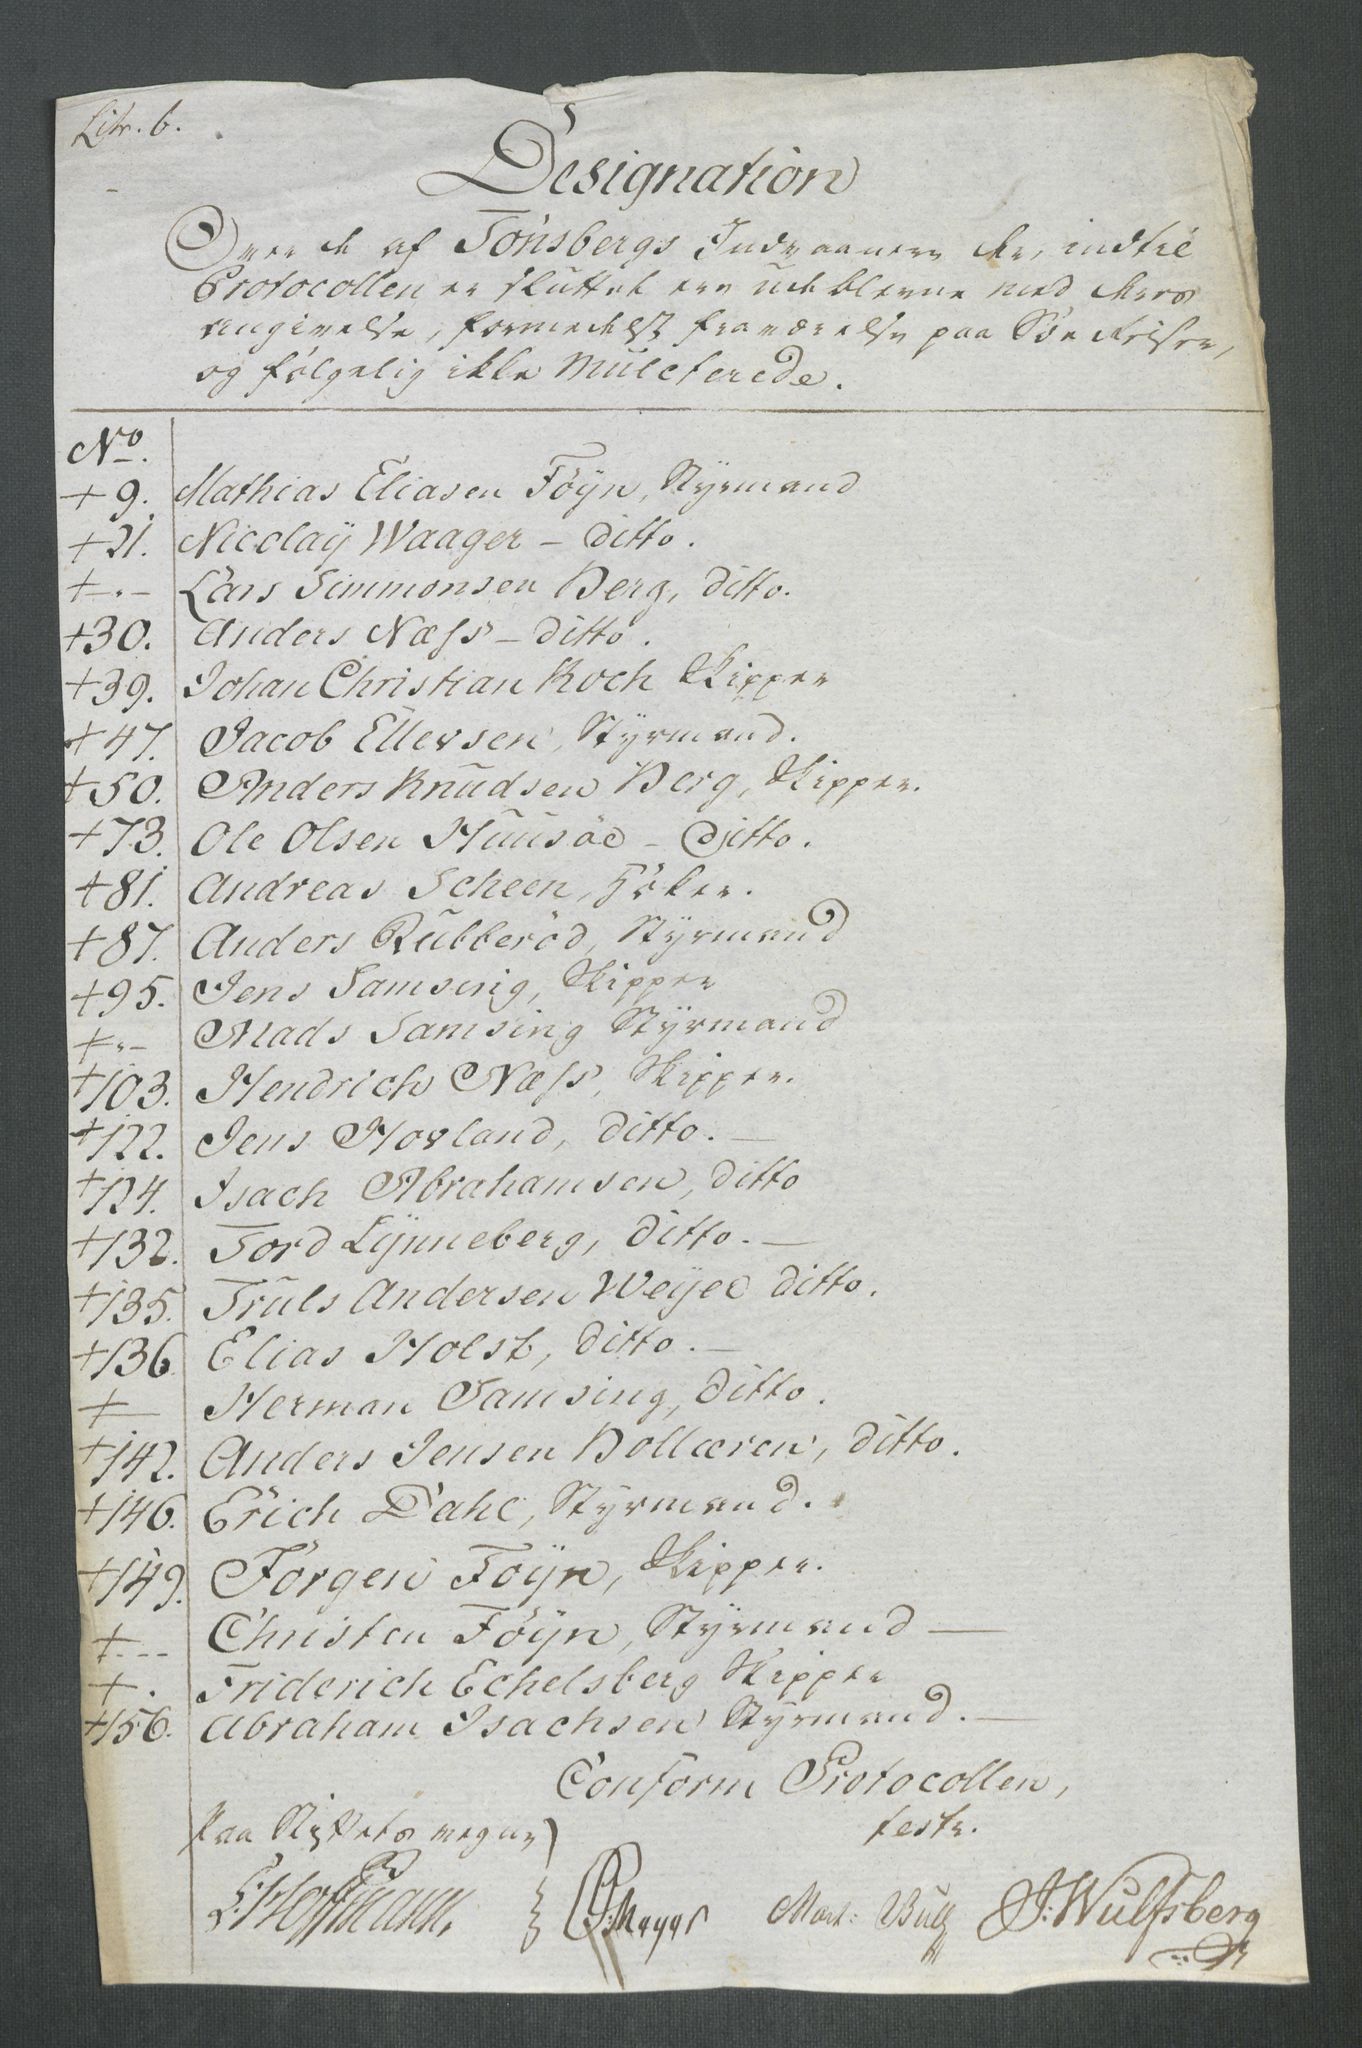 Litr. b.
Designation
Over de af Tönsbergs Indvaanere der, indtil
Protocollen er sluttet ere udeblevne med deres
Angivelse, formedelst fraværelse paa Söe Reiser,
og fölgelig ikke Mulcterede.
No.
+ 9. Mathias Eliasen Föyn, Styrmand
+ 21. Nicolaÿ Waager – ditto.
+ – „ – Lars Simmonsen Berg, ditto.
+ 30. Anders Næss – ditto.
+ 39. Johan Christian Koch Skipper
+ 47. Jacob Ellevsen, Styrmand.
+ 50. Anders Knudsen Berg, Skipper.
+ 73. Ole Olsen Huusöe – Ditto.
+ 81. Andreas Scheen, Höker.
+ 87. Anders Rubberöd, Styrmand
+ 95. Jens Samsing, Skipper
+ „ – Mads Samsing Styrmand
+ 103. Hendrich Næss, Skipper.
+ 122. Jens Hovland, ditto. –
+ 124. Isach Abrahamsen, ditto
+ 132. Tord Lÿnneberg, ditto. –
+ 135. Truls Andersen Weÿel ditto.
+ 136 Elias Holst, ditto. –
+ – Herman Samsing, ditto.
+ 142. Anders Jensen Bollæren, ditto.
+ 146. Erich Dahl, Styrmand.
+ 149. Jörgen Föÿn, Skipper.
+ – – – Christen Föÿn, Styrmand –
+ . Friderich Echelsberg Skipper
+ 156. Abraham Isachsen Styrmand. –
Conform Protocollen,
paa Stiftets vegne) testr.
Hoffmann. Meyer Mart: Bull J: Wulfsberg